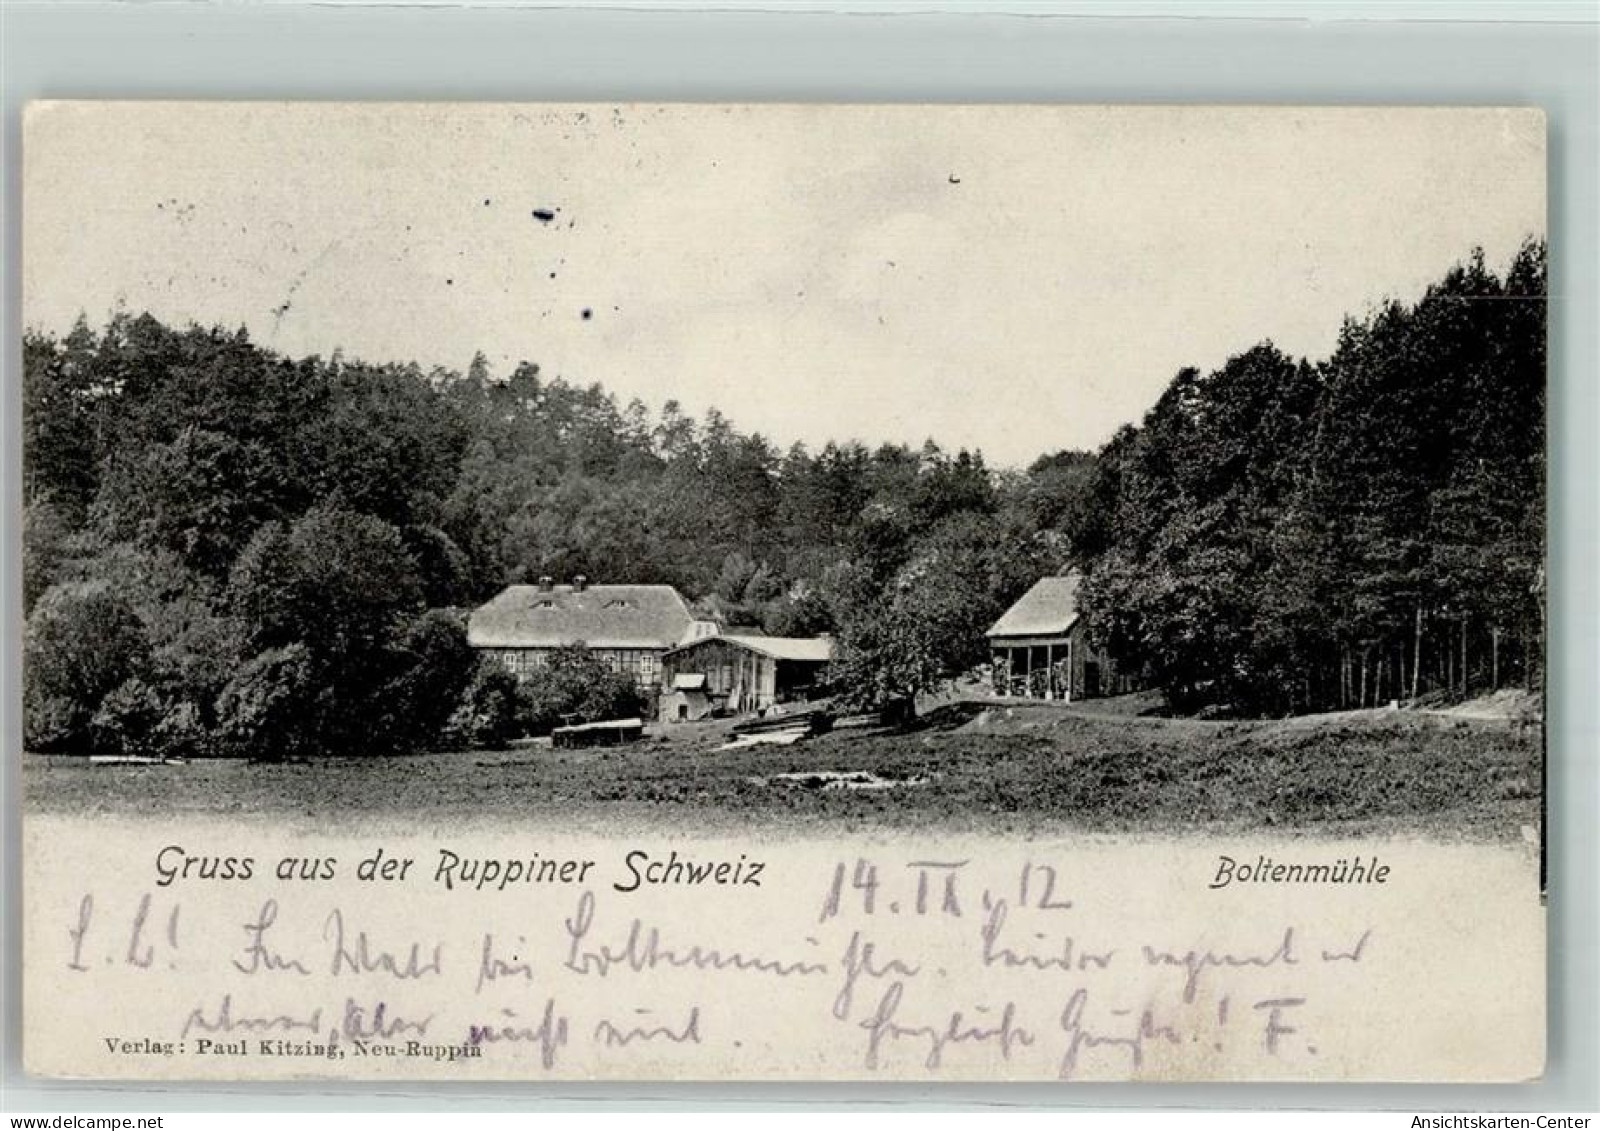 Gruss aus der Ruppiner Schweiz
Boltenmühle
14. IX. 12
L. L! Im Wald bei Boltenmühle. Leider regnet es
etwas, aber nicht viel. Herzliche Grüße! F.
Verlag: Paul Kitzing, Neu-Ruppin
Ansichtskarten-Center